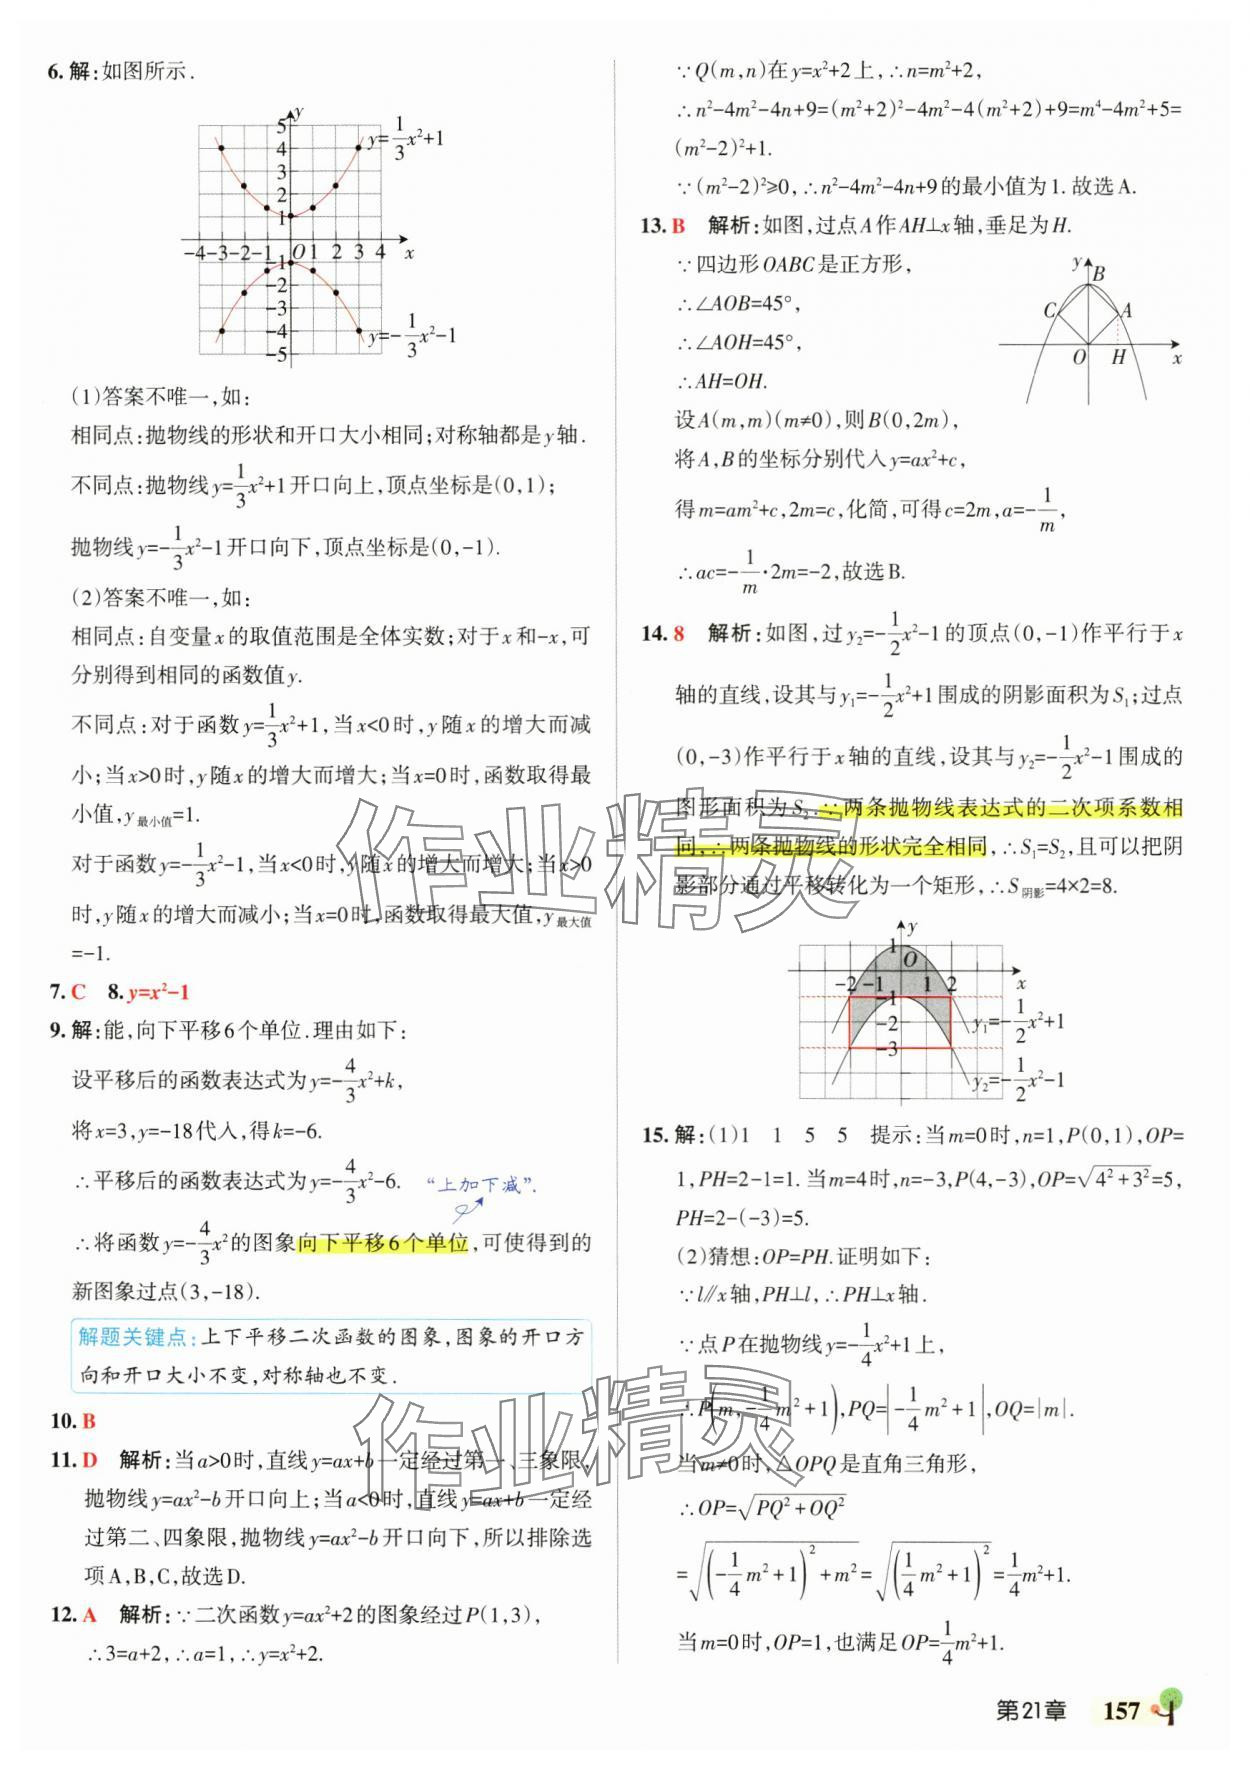 6. 解:如图所示.
y
5
4
3
2
1
-4 -3 -2 -1 O 1 2 3 4 x
-1
-2
-3
-4
-5
y=1/3x²+1
y=-1/3x²-1
(1)答案不唯一,如:
相同点:抛物线的形状和开口大小相同;对称轴都是y轴.
不同点:抛物线y=1/3x²+1开口向上,顶点坐标是(0,1);
抛物线y=-1/3x²-1开口向下,顶点坐标是(0,-1).
(2)答案不唯一,如:
相同点:自变量x的取值范围是全体实数;对于x和-x,可
分别得到相同的函数值y.
不同点:对于函数y=1/3x²+1,当x<0时,y随x的增大而减
小;当x>0时,y随x的增大而增大;当x=0时,函数取得最
小值,y最小值=1.
对于函数y=-1/3x²-1,当x<0时,y随x的增大而增大;当x>0
时,y随x的增大而减小;当x=0时,函数取得最大值,y最大值
=-1.
7. C 8. y=x²-1
9. 解:能,向下平移6个单位.理由如下:
设平移后的函数表达式为y=-4/3x²+k,
将x=3,y=-18代入,得k=-6.
∴平移后的函数表达式为y=-4/3x²-6. “上加下减”.
∴将函数y=-4/3x²的图象向下平移6个单位,可使得到的
新图象过点(3,-18).
解题关键点:上下平移二次函数的图象,图象的开口方
向和开口大小不变,对称轴也不变.
10. B
11. D 解析:当a>0时,直线y=ax+b一定经过第一、三象限,
抛物线y=ax²-b开口向上;当a<0时,直线y=ax+b一定经
过第二、四象限,抛物线y=ax²-b开口向下,所以排除选
项A,B,C,故选D.
12. A 解析:∵二次函数y=ax²+2的图象经过P(1,3),
∴3=a+2,∴a=1,∴y=x²+2.
∵Q(m,n)在y=x²+2上,∴n=m²+2,
∴n²-4m²-4n+9=(m²+2)²-4m²-4(m²+2)+9=m⁴-4m²+5=
(m²-2)²+1.
∵(m²-2)²≥0,∴n²-4m²-4n+9的最小值为1.故选A.
13. B 解析:如图,过点A作AH⊥x轴,垂足为H.
∵四边形OABC是正方形,
∴∠AOB=45°,
∴∠AOH=45°,
∴AH=OH.
y
B
C
A
O H x
设A(m,m)(m≠0),则B(0,2m),
将A,B的坐标分别代入y=ax²+c,
得m=am²+c,2m=c,化简,可得c=2m,a=-1/m,
∴ac=-1/m·2m=-2,故选B.
14. 8 解析:如图,过y₂=-1/2x²-1的顶点(0,-1)作平行于x
轴的直线,设其与y₁=-1/2x²+1围成的阴影面积为S₁;过点
(0,-3)作平行于x轴的直线,设其与y₂=-1/2x²-1围成的
图形面积为S₂.∵两条抛物线表达式的二次项系数相
同,∴两条抛物线的形状完全相同,∴S₁=S₂,且可以把阴
影部分通过平移转化为一个矩形,∴S阴影=4×2=8.
y
1
O
-2 -1 1 2 x
-1
-2
-3
y₁=-1/2x²+1
y₂=-1/2x²-1
15. 解:(1)1 1 5 5 提示:当m=0时,n=1,P(0,1),OP=
1,PH=2-1=1.当m=4时,n=-3,P(4,-3),OP=√(4²+3²)=5,
PH=2-(-3)=5.
(2)猜想:OP=PH.证明如下:
∵l∥x轴,PH⊥l,∴PH⊥x轴.
∵点P在抛物线y=-1/4x²+1上,
∴P(m,-1/4m²+1),PQ=|-1/4m²+1|,OQ=|m|.
当m≠0时,△OPQ是直角三角形,
∴OP=√(PQ²+OQ²)
=√((-1/4m²+1)²+m²)=√((1/4m²+1)²)=1/4m²+1.
当m=0时,OP=1,也满足OP=1/4m²+1.
作业精灵
作业精灵
第21章 157